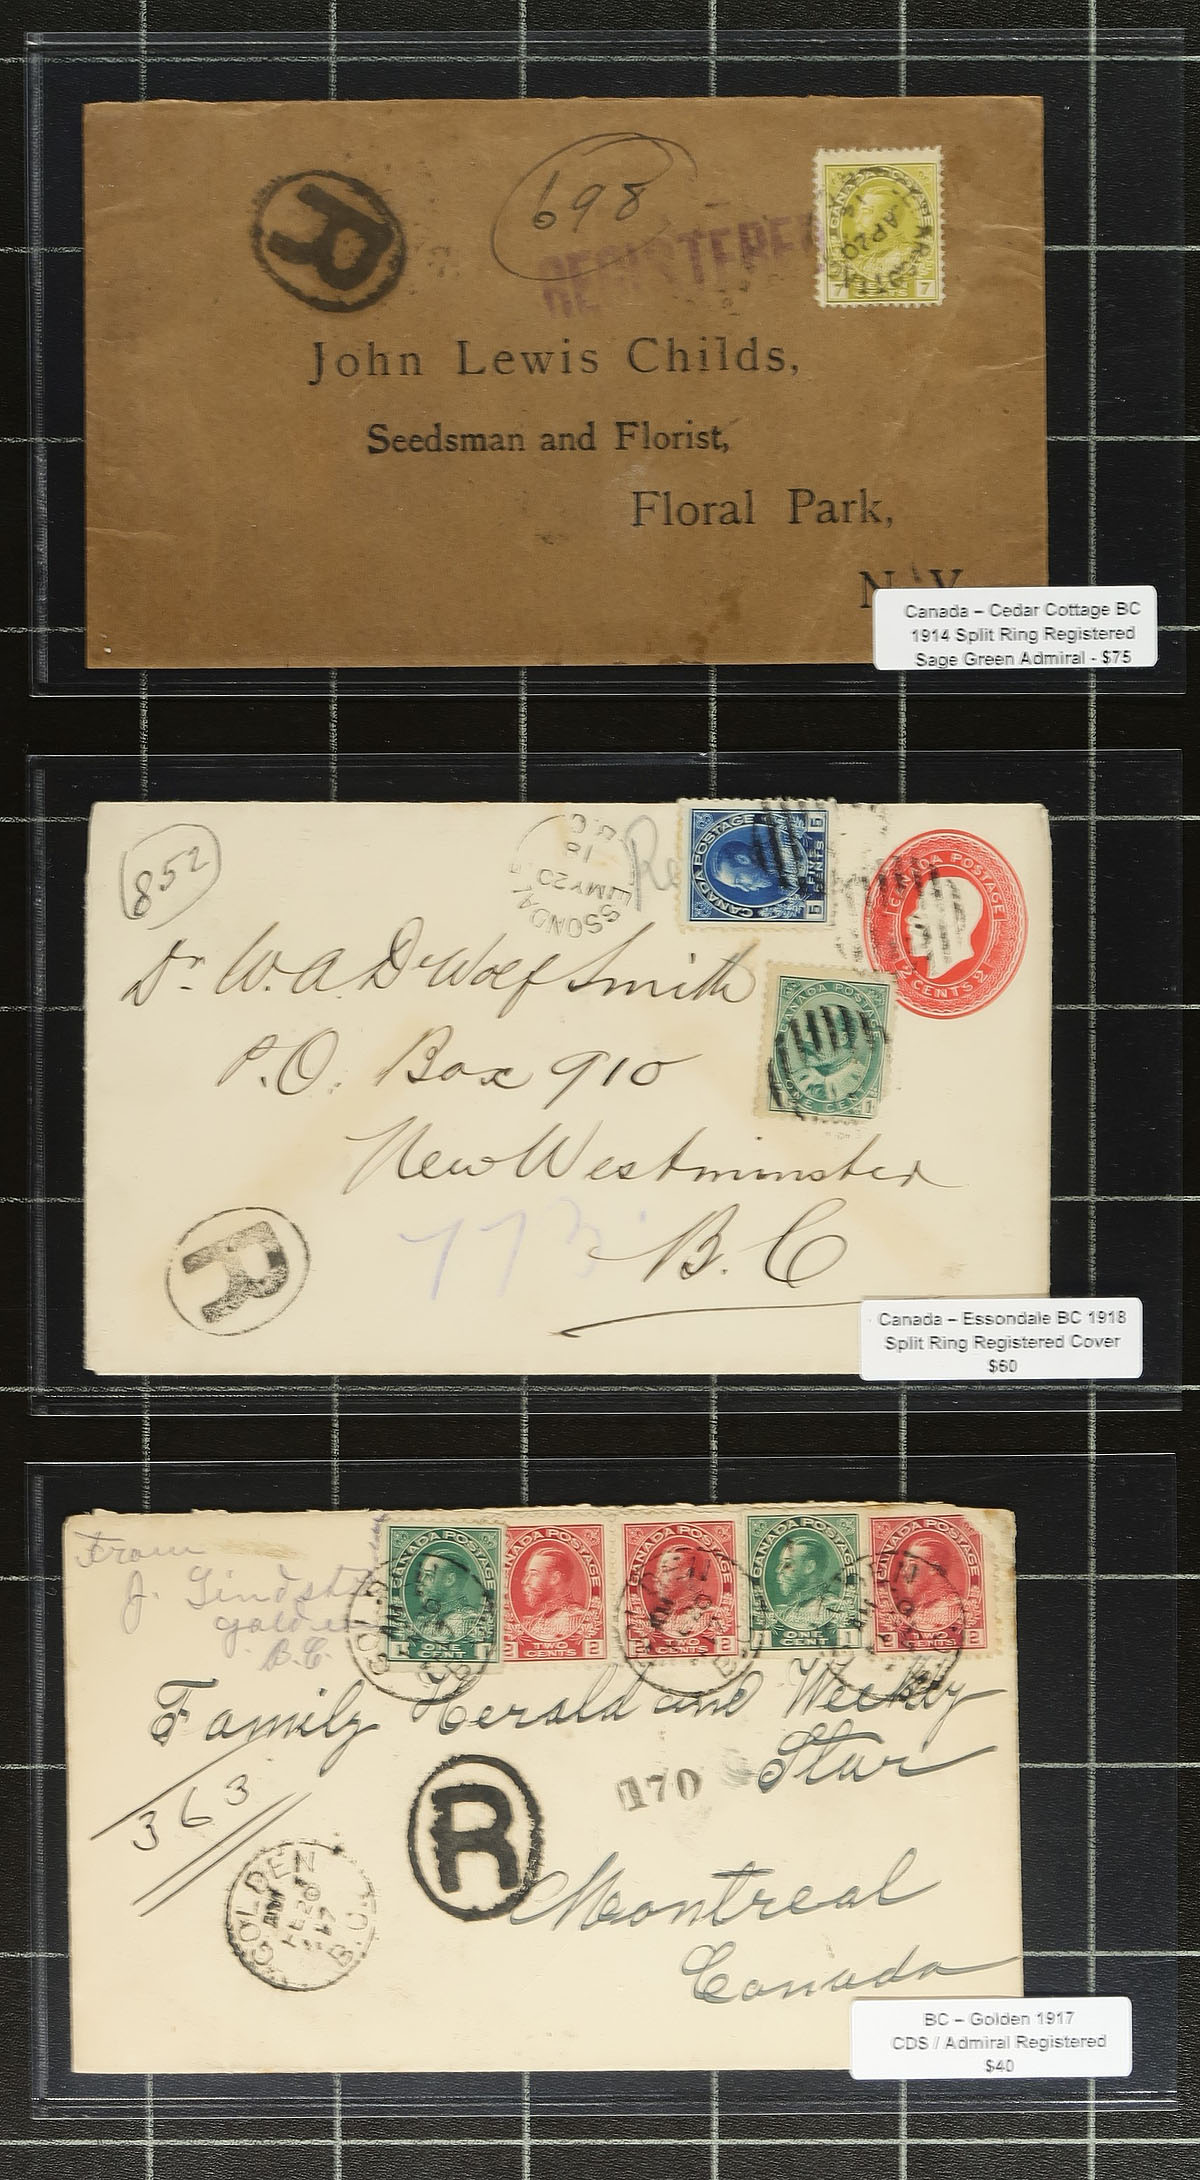 R
698
REGISTERED
CANADA POSTAGE
AP 20
14
7 CENTS 7
John Lewis Childs,
Seedsman and Florist,
Floral Park,
N.Y.
Canada – Cedar Cottage BC
1914 Split Ring Registered
Sage Green Admiral - $75
852
ESSONDALE
MY 20
18
B.C.
Re
CANADA POSTAGE
5 CENTS 5
CANADA POSTAGE
2 CENTS 2
Dr. W. A. DeWolf Smith
CANADA POSTAGE
ONE CENT
1
P.O. Box 910
New Westminster
B.C
773
R
Canada – Essondale BC 1918
Split Ring Registered Cover
$60
From
J. Lindst
Golden
B.C.
CANADA POSTAGE
1 ONE CENT 1
CANADA POSTAGE
2 TWO CENTS 2
CANADA POSTAGE
2 TWO CENTS 2
CANADA POSTAGE
1 ONE CENT 1
CANADA POSTAGE
2 TWO CENTS 2
Family Herald and Weekly
Star
363
R
170
GOLDEN
AM
FE 20
17
B.C.
Montreal
Canada
BC – Golden 1917
CDS / Admiral Registered
$40